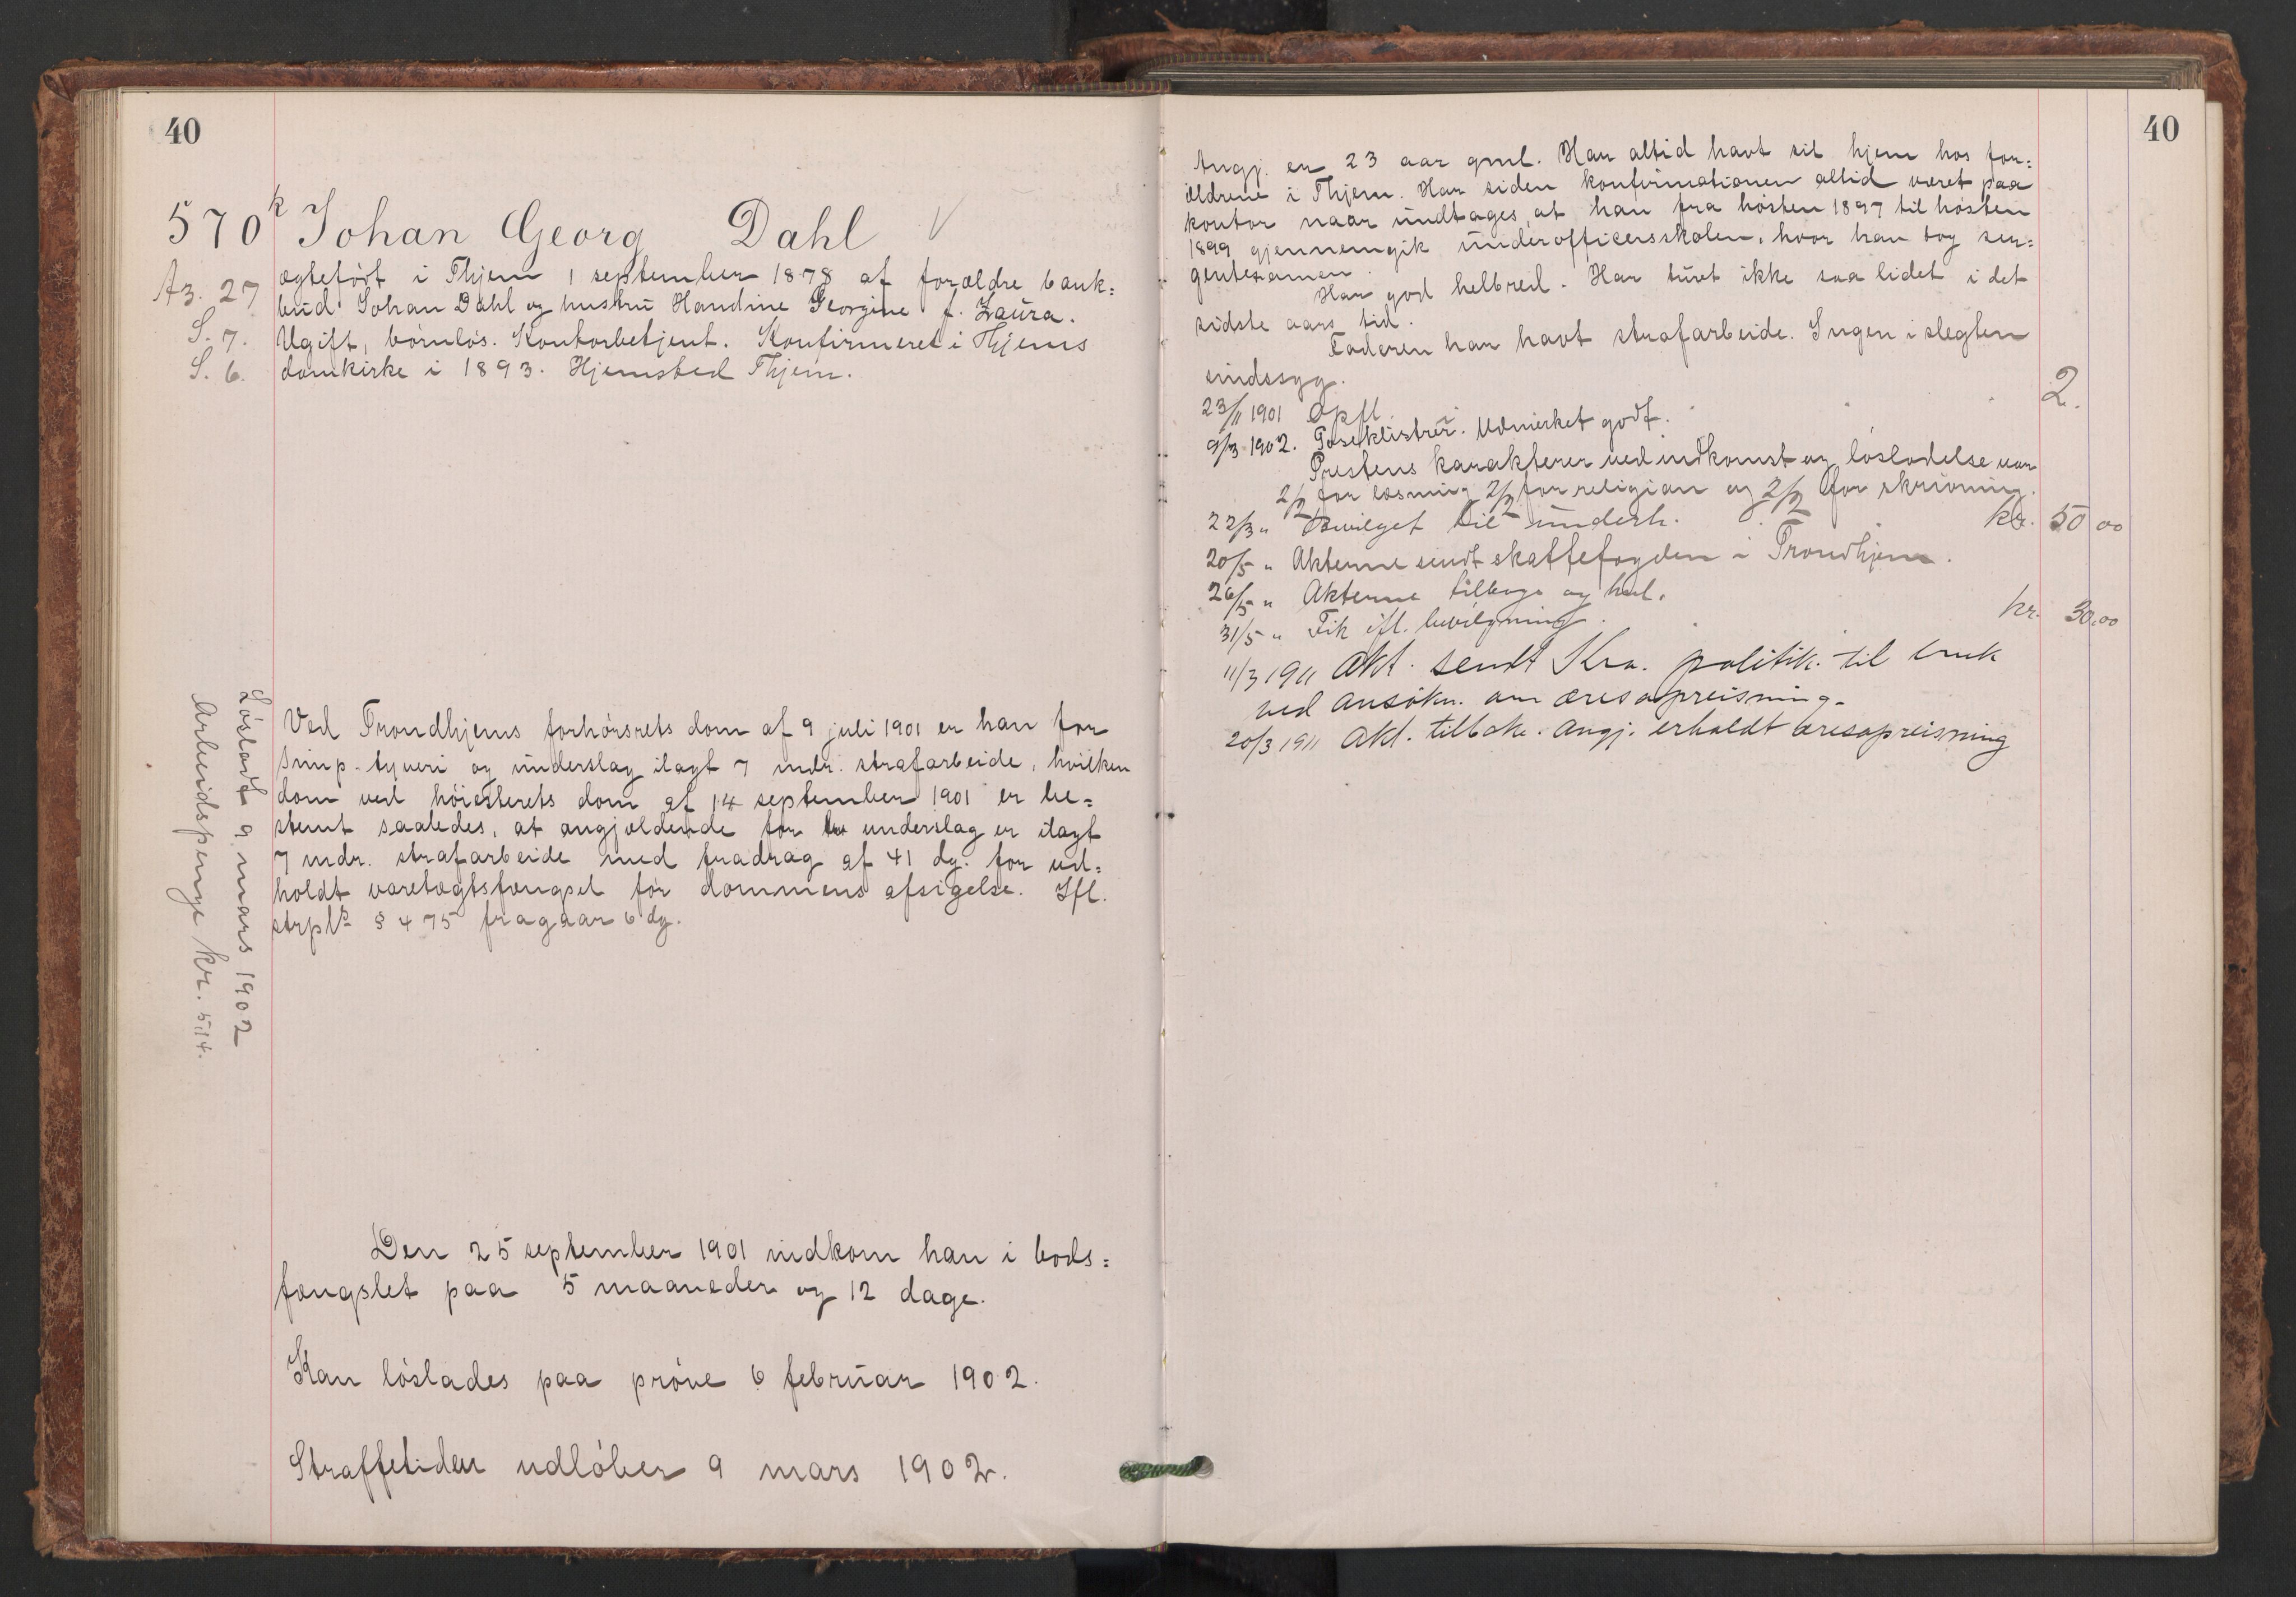 40
570 k Johan Georg Dahl V
A3. 27
S. 7.
S. 6.
ægtefødt i Thjem 1 september 1878 af forældre bank=
bud Johan Dahl og hustru Handine Georgine f. Zaura.
Ugift, børnløs. Kontorbetjent. Konfirmeret i Thjems
domkirke i 1893. Hjemsted Thjem.
Løsladt 9 mars 1902
Arbeidspenge kr. 5.14.
Ved Trondhjems forhørsrets dom af 9 juli 1901 er han for
simp. tyveri og underslag ilagt 7 mdr. strafarbeide, hvilken
dom ved høiesterets dom af 14 september 1901 er be=
stemt saaledes, at angjældende for underslag er ilagt
7 mdr. strafarbeide med fradrag af 41 dg. for ud=
holdt varetægtsfængsel før dommens afsigelse. Ifl.
strpls § 475 fragaar 6 dg.
Den 25 september 1901 indkom han i bods=
fængslet paa 5 maaneder og 12 dage.
Kan løslades paa prøve 6 februar 1902.
Straffetiden udløber 9 mars 1902.
40
Angj. er 23 aar gml. Har altid havt sit hjem hos for=
ældrene i Thjem. Har siden konfirmationen altid været paa
kontor naar undtages, at han fra høsten 1897 til høsten
1899 gjennemgik underofficersskolen, hvor han tog ser=
gentexamen.
Har god helbred. Har turet ikke saa lidet i det
sidste aars tid.
Faderen har havt strafarbeide. Ingen i slegten
sindssyg.
23/11 1901 Opfl. 2.
9/3 1902. Poseklistrer. Udmerket godt.
Prestens karakterer ved indkomst og løsladelse var
2/2 for læsning 2/2 for religion og 2/2 for skrivning.
22/3 " Bevilget til underh. kr. 50 00
20/5 " Akterne sendt skattefogden i Trondhjem.
26/5 " Akterne tilbage og hul.
31/5 " Fik ifl. bevilgning. kr. 30.00
11/3 1911 Akt. sendt Kra. politik. til bruk
ved ansøkn. om æresopreisning.
20/3 1911 Akt. tilbake. Angj. erholdt æresopreisning